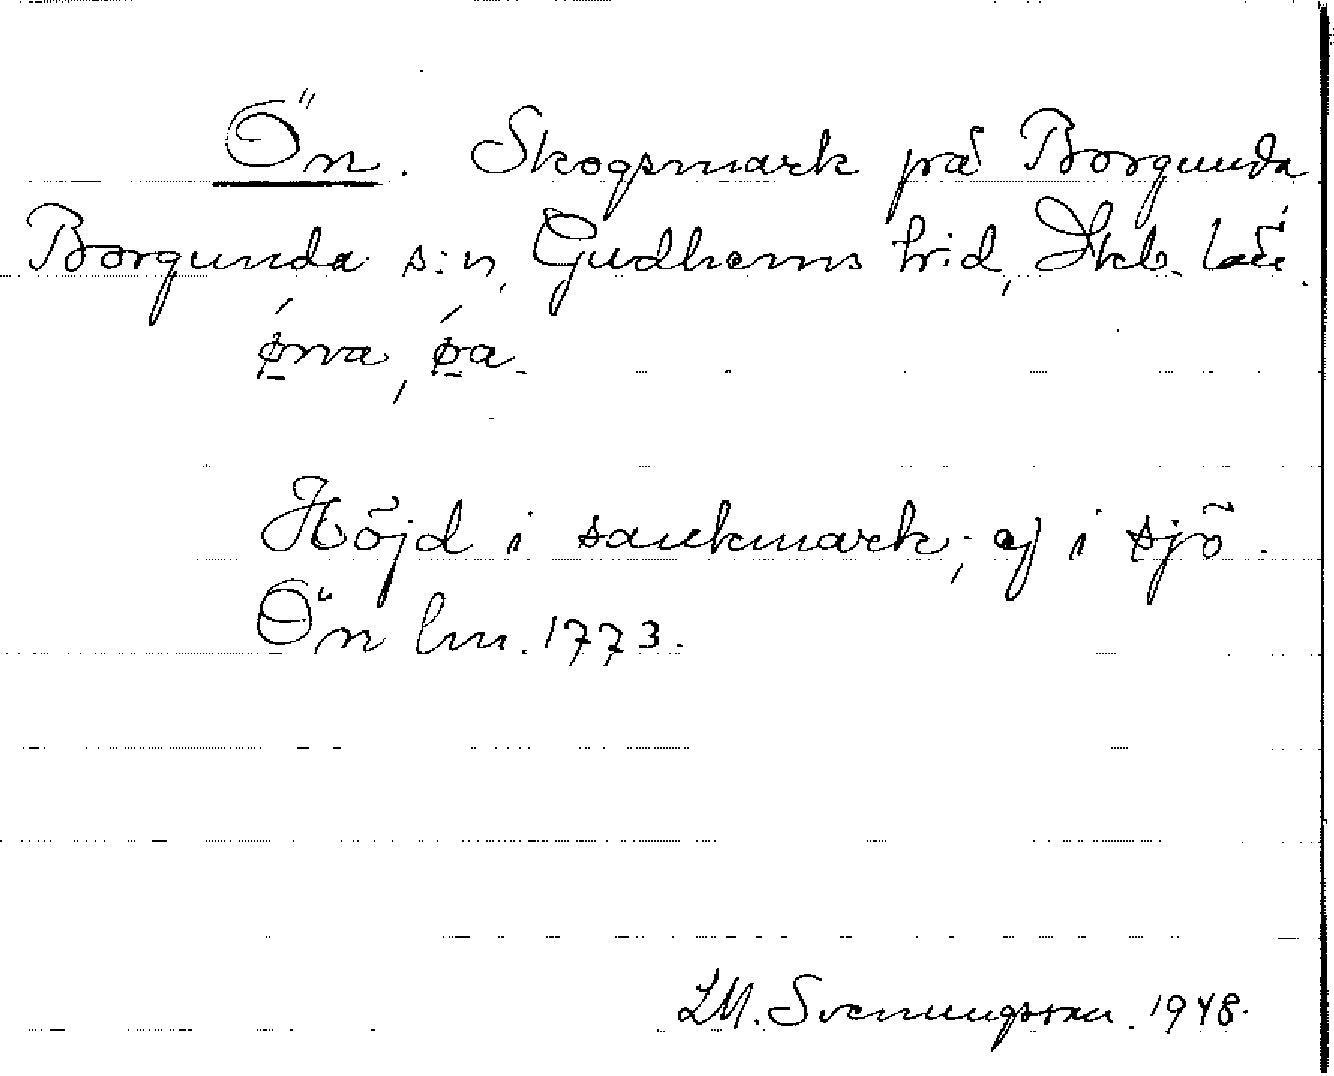 Ön. Skogsmark på Borgunda
Borgunda s:n, Gudhems hrd, Skb. län.
Höjd i sankmark; ej i sjö.
Ön lm. 1773.
LM. Svenungsson. 1948.